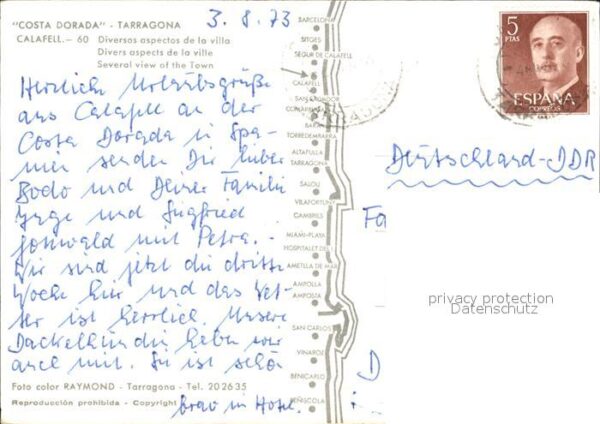 "COSTA DORADA" - TARRAGONA
3. 8. 73
CALAFELL. — 60 Diversos aspectos de la villa
Divers aspects de la ville
Several view of the Town
Herzliche Urlaubsgrüße
aus Calafell an der
Costa Dorada in Spa-
nien senden Dir lieber
Bodo und Deiner Familie
Inge und Siegfried
mit Petra. -
Wir sind jetzt die dritte
Woche hier und das Wet-
ter ist herrlich. Unsere
Dackelhündin haben wir
auch mit. Sie ist schön
brav im Hotel.
Foto color RAYMOND - Tarragona - Tel. 202635
Reproducción prohibida - Copyright
BARCELONA
SITGES
SEGUR DE CALAFELL
CALAFELL
SAN SALVADOR
BARA
TORREDEMBARRA
ALTAFULLA
TARRAGONA
SALOU
VILAFORTUNY
CAMBRILS
MIAMI-PLAYA
HOSPITALET DEL I.
AMETLLA DE MAR
AMPOLLA
AMPOSTA
SAN CARLOS
VINAROZ
BENICARLO
PEÑISCOLA
5
PTAS
ESPAÑA
CORREOS
Deutschland-DDR
Fa
D
privacy protection
Datenschutz